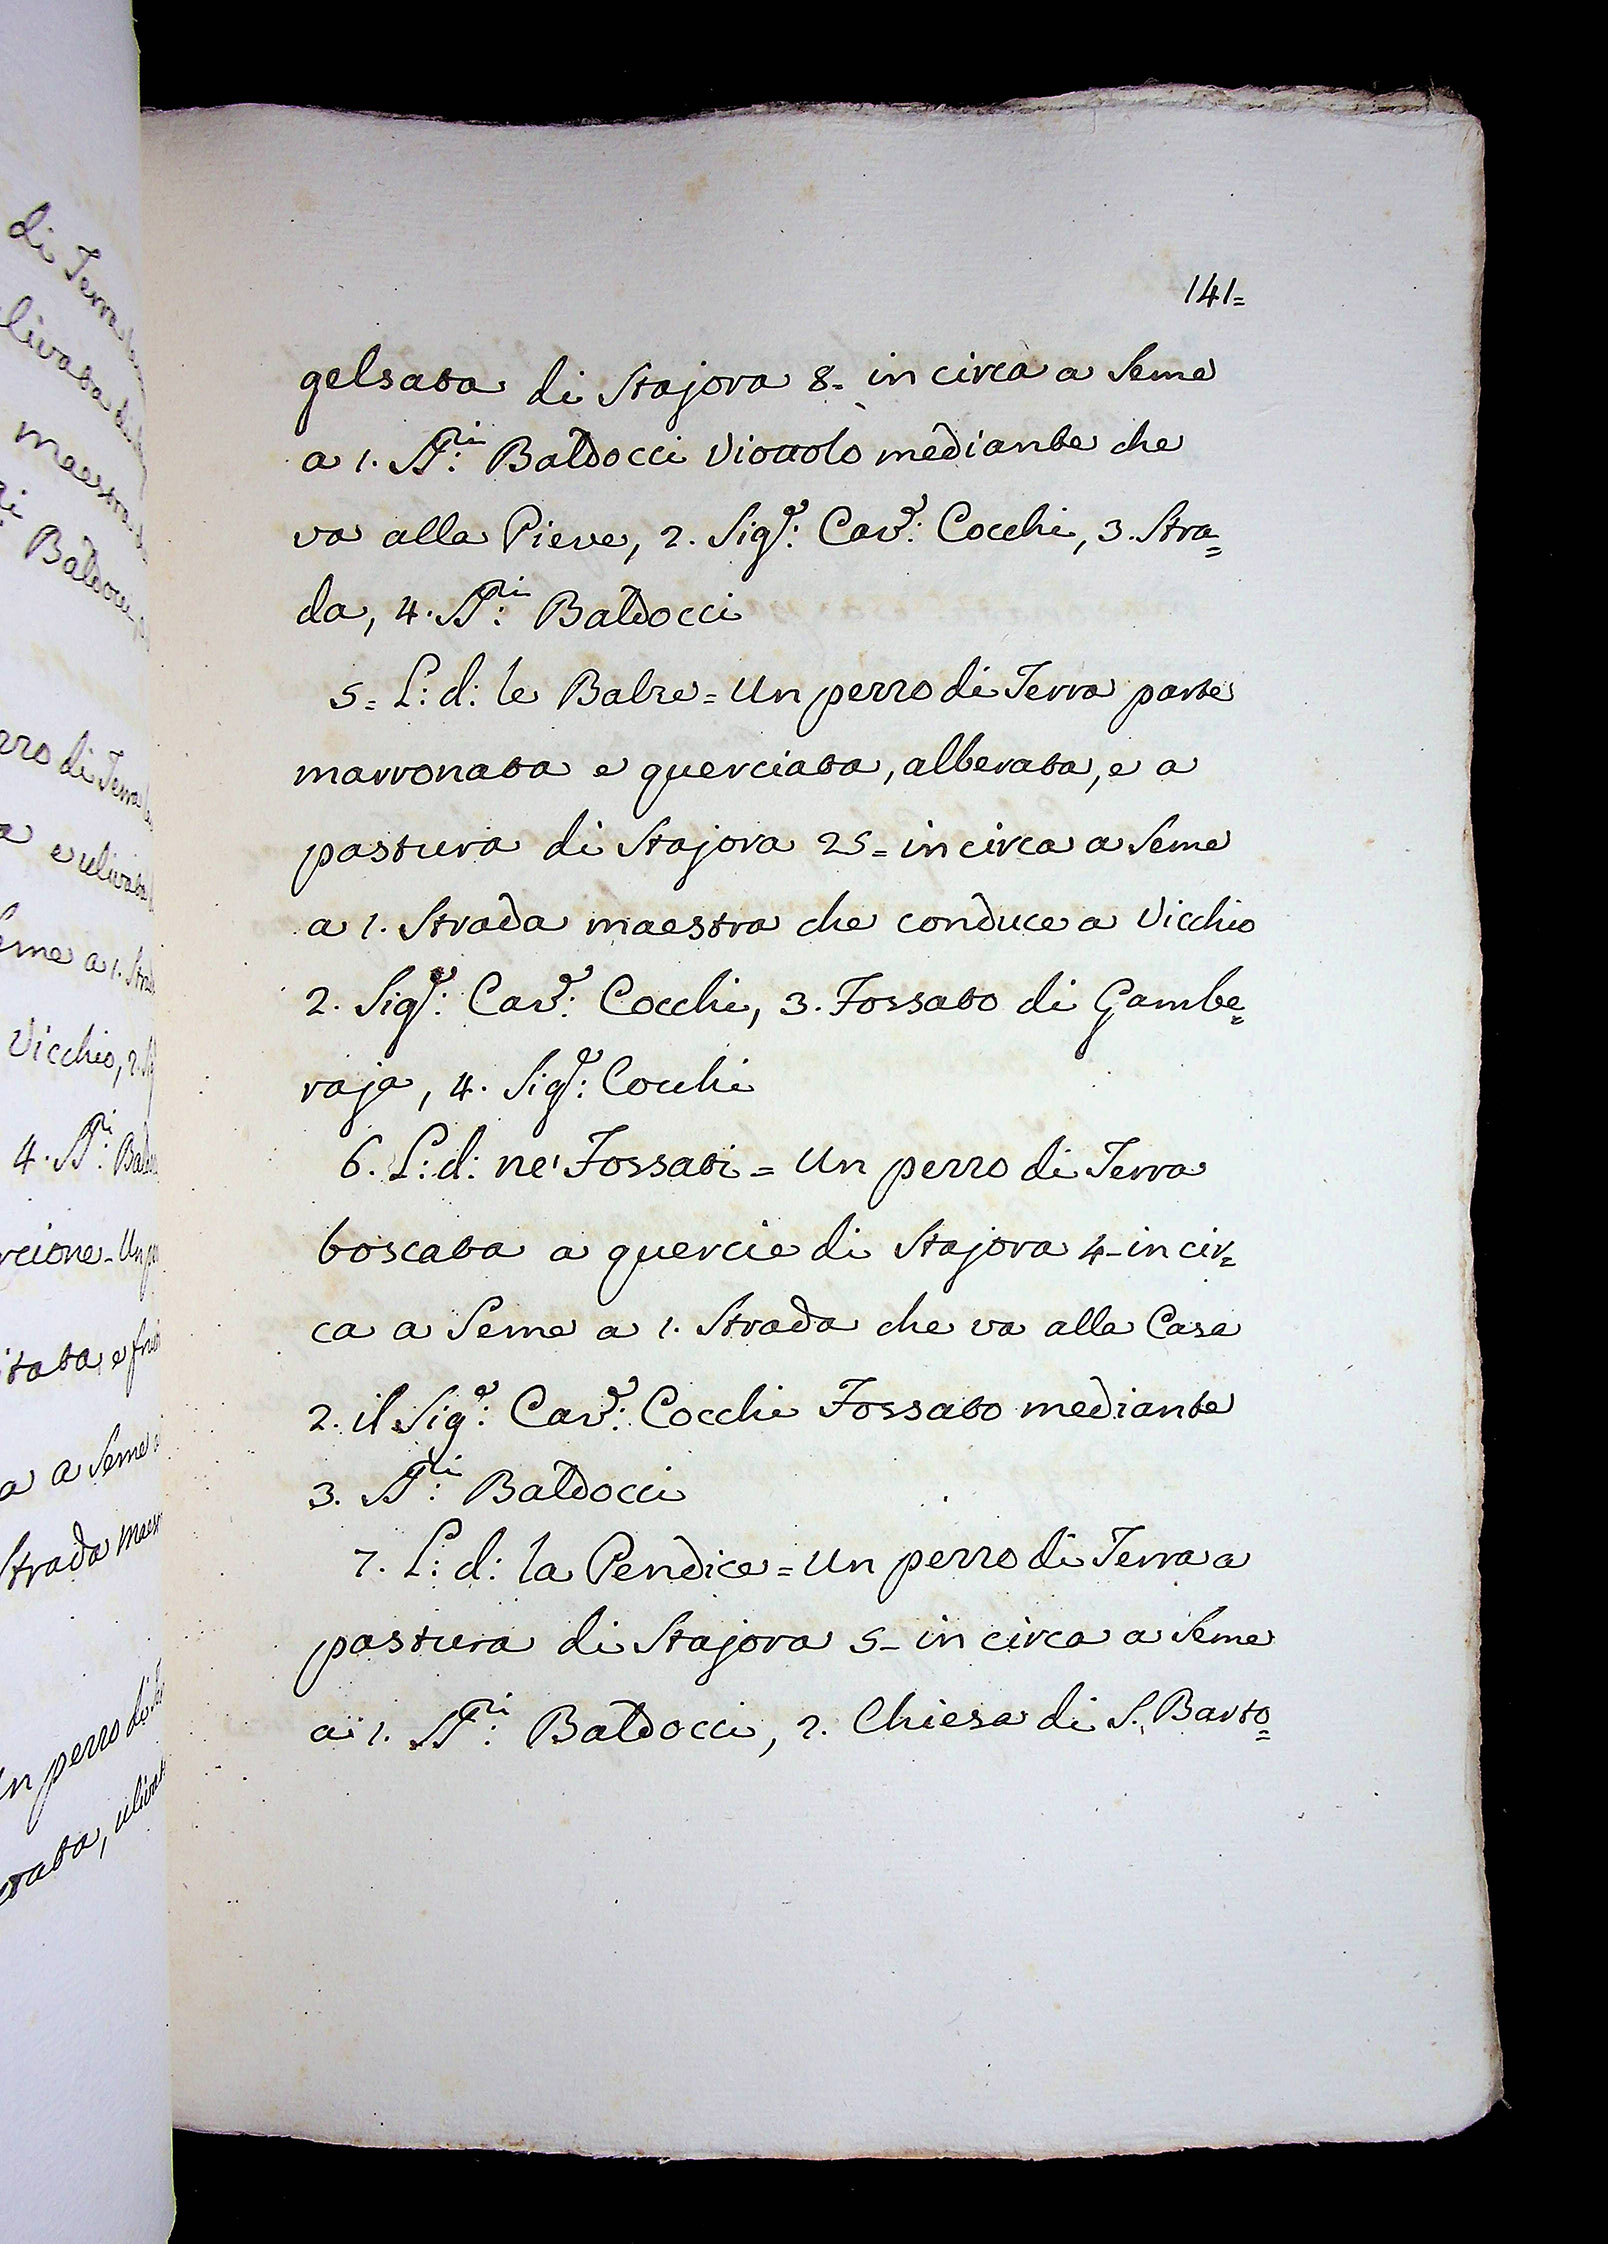 di Terra
livata di
maestra
Baldocci
zzo di Terra
a e ulivata
Seme a 1. Stra
Vicchio, 2. Si
4. SS:ri Baldo
rcione = Un pe
itata, e frut
a a Seme a
Strada maes
Un pezzo di Te
tata, ulivat
141=
gelsata di Stajora 8= in circa a Seme
a 1. SS:ri Baldocci Viottolo mediante che
va alla Pieve, 2. Sig:e Cav:e Cocchi, 3. Stra=
da, 4. SS:ri Baldocci
5= L: d: le Balze = Un pezzo di Terra parte
marronata e querciata, alberata, e a
pastura di Stajora 25= in circa a Seme
a 1. Strada maestra che conduce a Vicchio
2. Sig:e Cav:e Cocchi, 3. Fossato di Gambe=
raja, 4. Sig:e Cocchi
6. L: d: ne' Fossati = Un pezzo di Terra
boscata a quercie di Stajora 4= in cir=
ca a Seme a 1. Strada che va alla Casa
2. il Sig:e Cav:e Cocchi Fossato mediante
3. SS:ri Baldocci
7. L: d: la Pendice = Un pezzo di Terra a
pastura di Stajora 5= in circa a Seme
a 1. SS:ri Baldocci, 2. Chiesa di S. Barto=